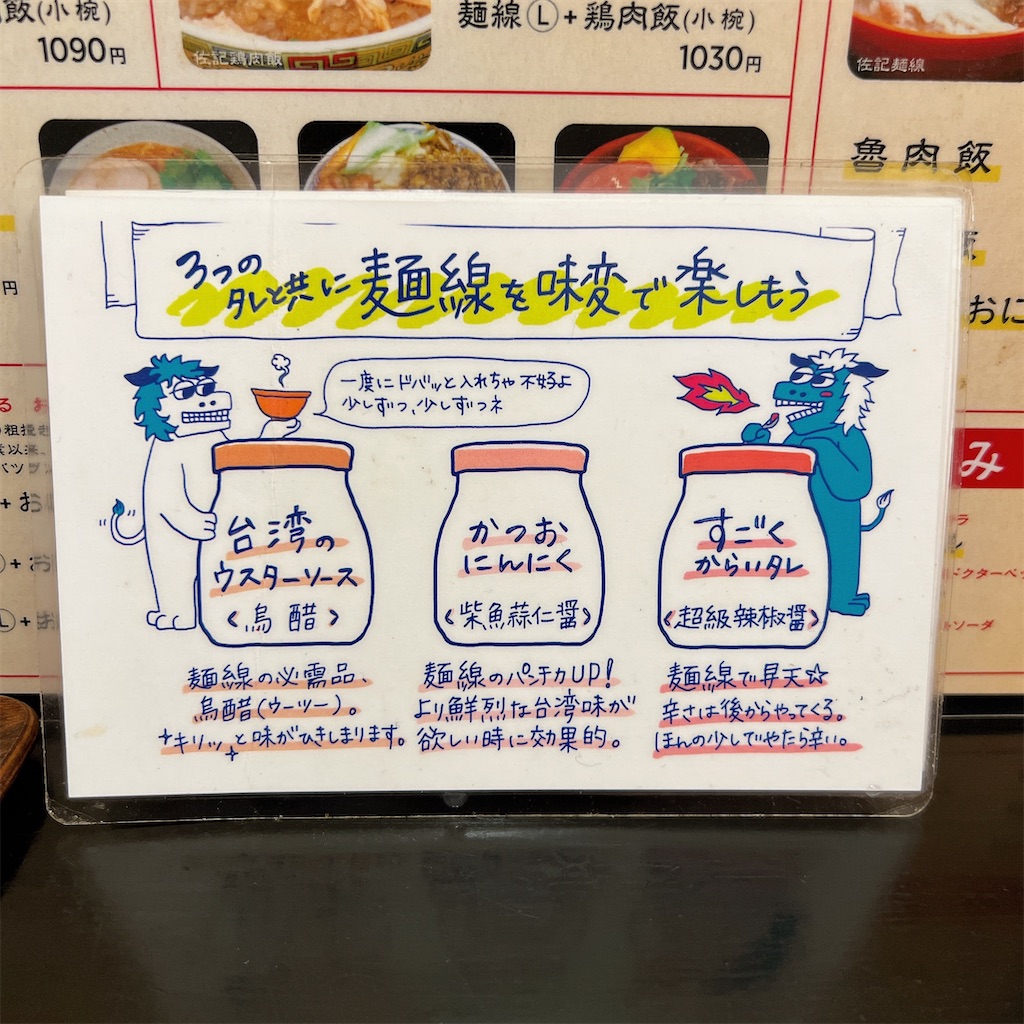 飯(小椀)
1090円
佐記鶏肉飯
麺線Ⓛ+鶏肉飯(小椀)
1030円
佐記麺線
魯肉飯
円
おに
み
ドクターペッ
ソーダ
3つの
タレと共に麺線を味変で楽しもう
一度にドバッと入れちゃ不好よ
少しずつ、少しずつネ
台湾の
ウスターソース
〈烏醋〉
かつお
にんにく
〈柴魚蒜仁醤〉
すごく
からいタレ
〈超級辣椒醤〉
麺線の必需品、
烏醋(ウーツー)。
キリッと味がひきしまります。
麺線のパンチ力UP!
より鮮烈な台湾味が
欲しい時に効果的。
麺線で昇天☆
辛さは後からやってくる。
ほんの少しでやたら辛い。